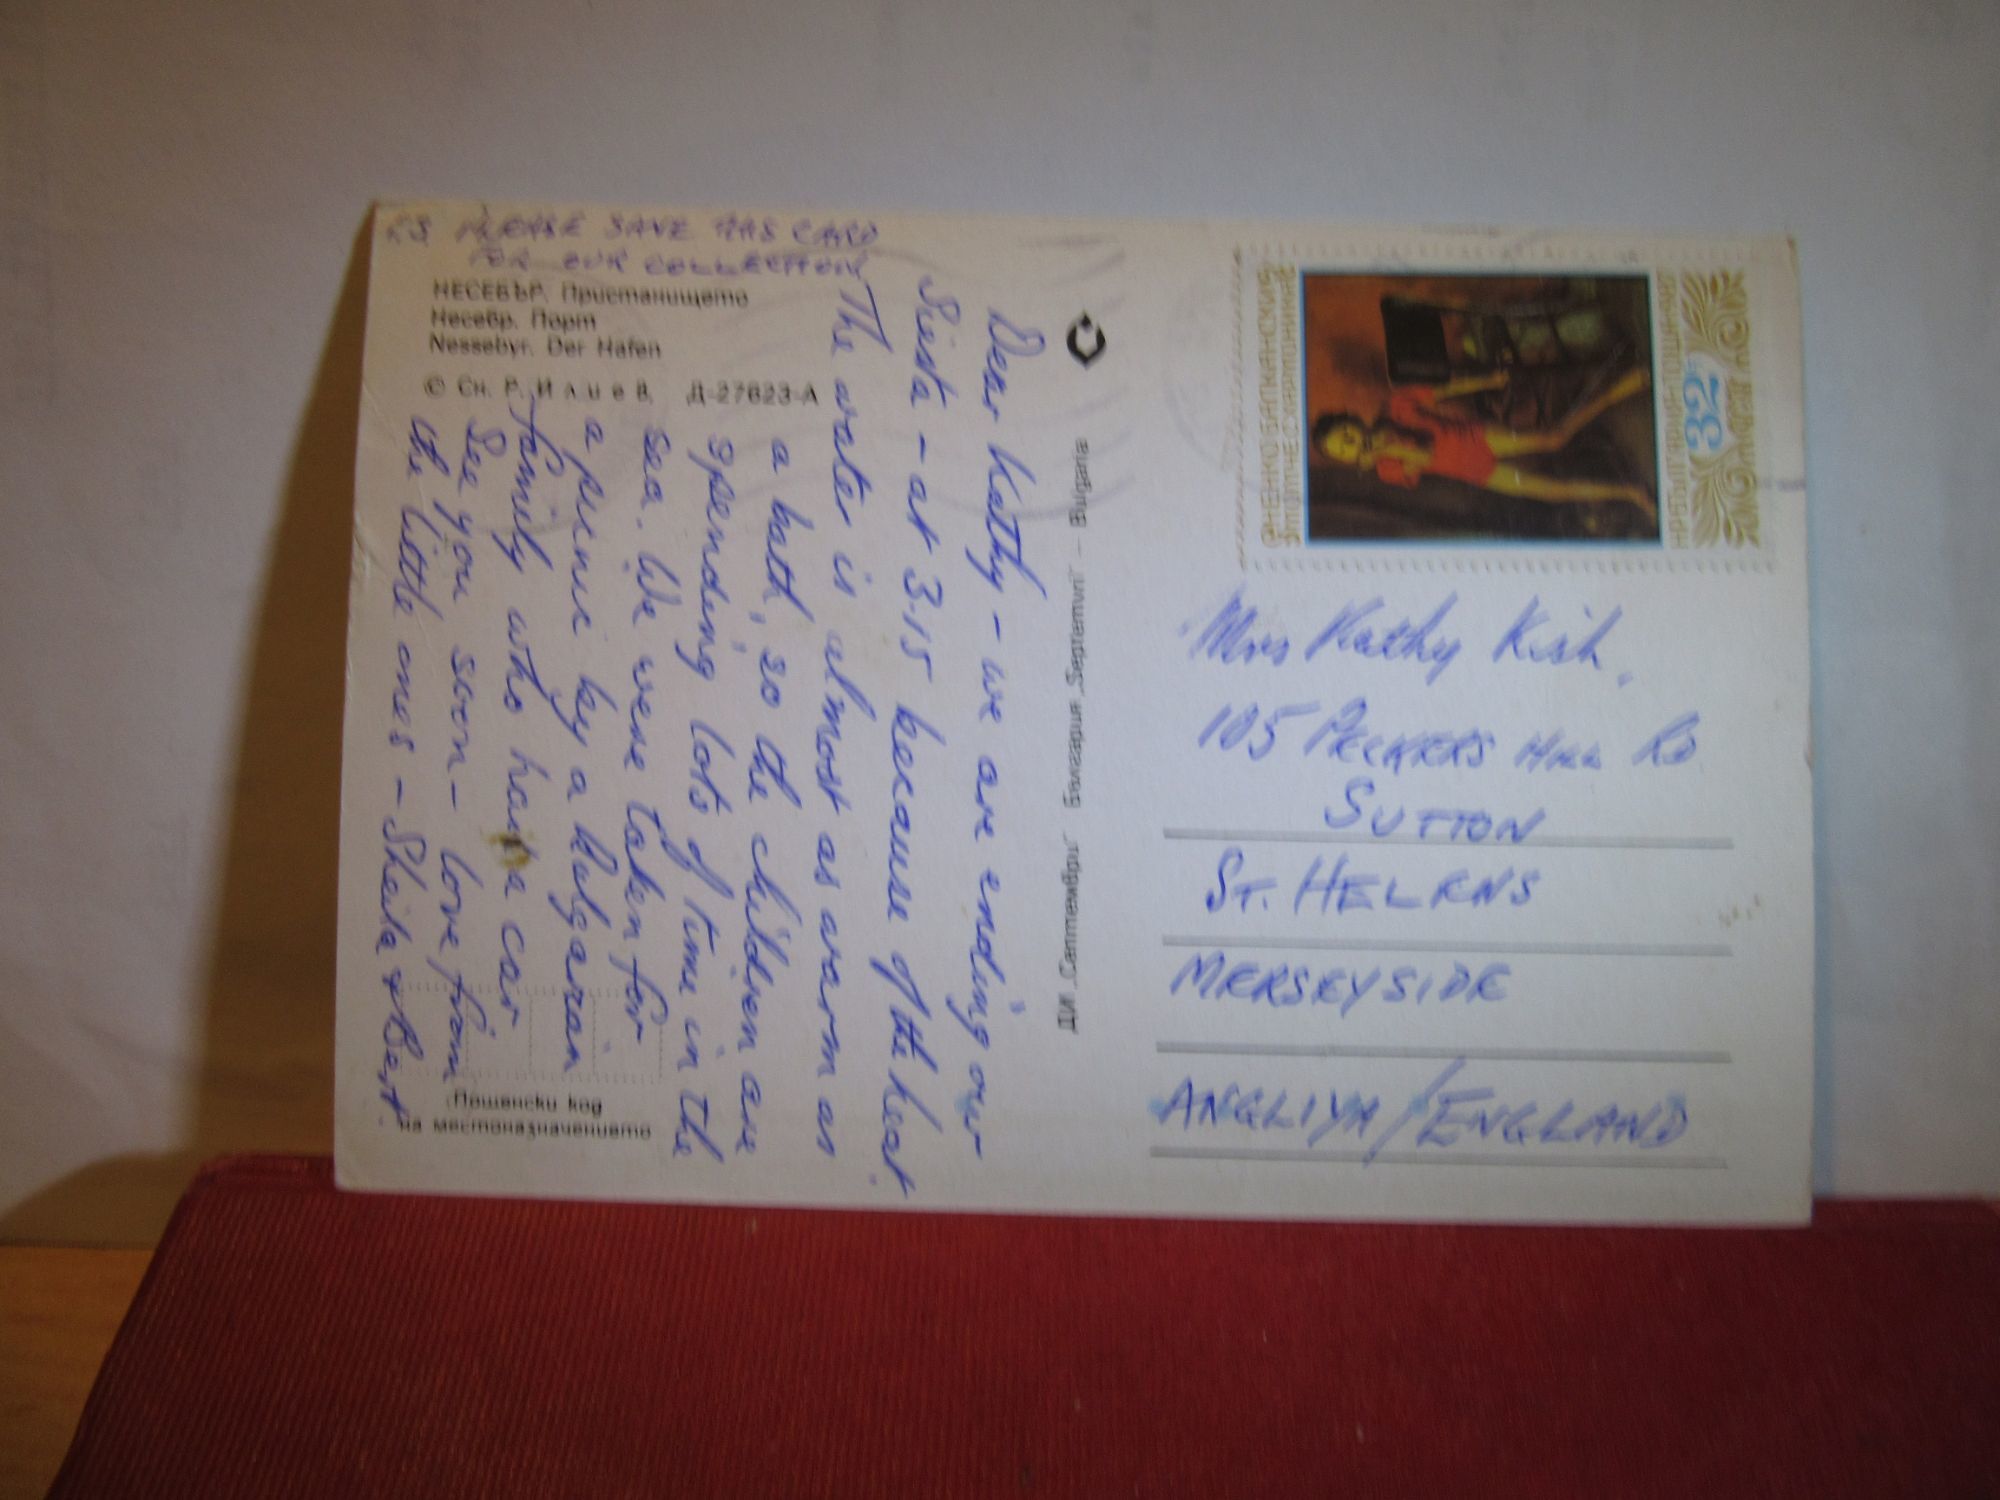 P.S. PLEASE SAVE THIS CARD
FOR OUR COLLECTION
НЕСЕБЪР. Пристанището
Несебр. Порт
Nessebyr. Der Hafen
© Сн. Р. Илиев, Д-27623-А
Dear Kathy - we are ending our
Siesta - at 3.15 because of the heat.
The water is almost as warm as
a bath, so the children are
spending lots of time in the
sea. We were taken for
a picnic by a Bulgarian
family who have a car
See you soon - love from
the little ones - Sheila & Bert.
Пощенски код
на местоназначението
ДИ „Септември" България „Septemvri" - Bulgaria
НЕНКО БАЛКАНСКИ
НР БЪЛГАРИЯ · ПОЩА · 1976
32
Mrs Kathy Kish,
105 PECKERS HILL RD
SUTTON
ST. HELENS
MERSEYSIDE
ANGLIYA / ENGLAND